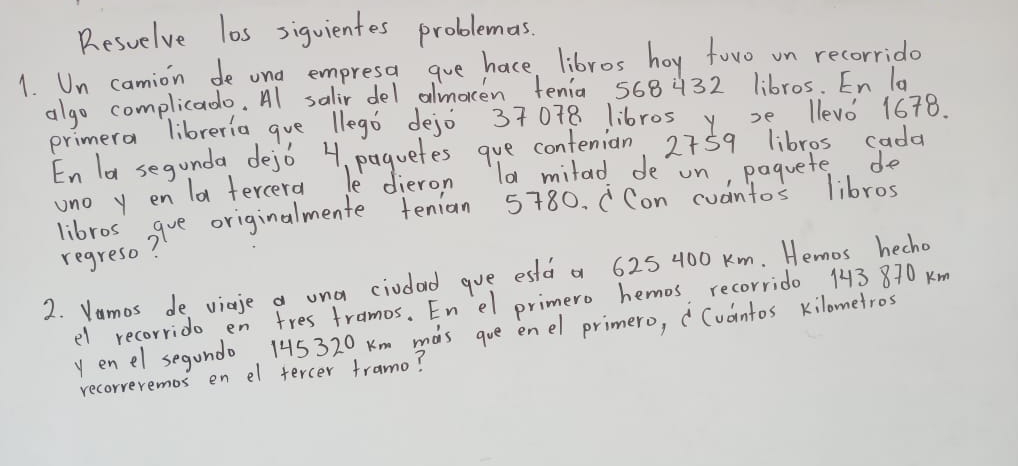 Resuelve los siguientes problemas.
1. Un camión de una empresa que hace libros hoy tuvo un recorrido
algo complicado. Al salir del almacén tenía 568 432 libros. En la
primera librería que llegó dejó 37 078 libros y se llevó 1678.
En la segunda dejó 4 paquetes que contenían 2759 libros cada
uno y en la tercera le dieron la mitad de un paquete de
libros que originalmente tenían 5780. ¿Con cuántos libros
regreso?
2. Vamos de viaje a una ciudad que está a 625 400 km. Hemos hecho
el recorrido en tres tramos. En el primero hemos recorrido 143 870 km
y en el segundo 145320 km más que en el primero, ¿Cuántos kilometros
recorreremos en el tercer tramo?